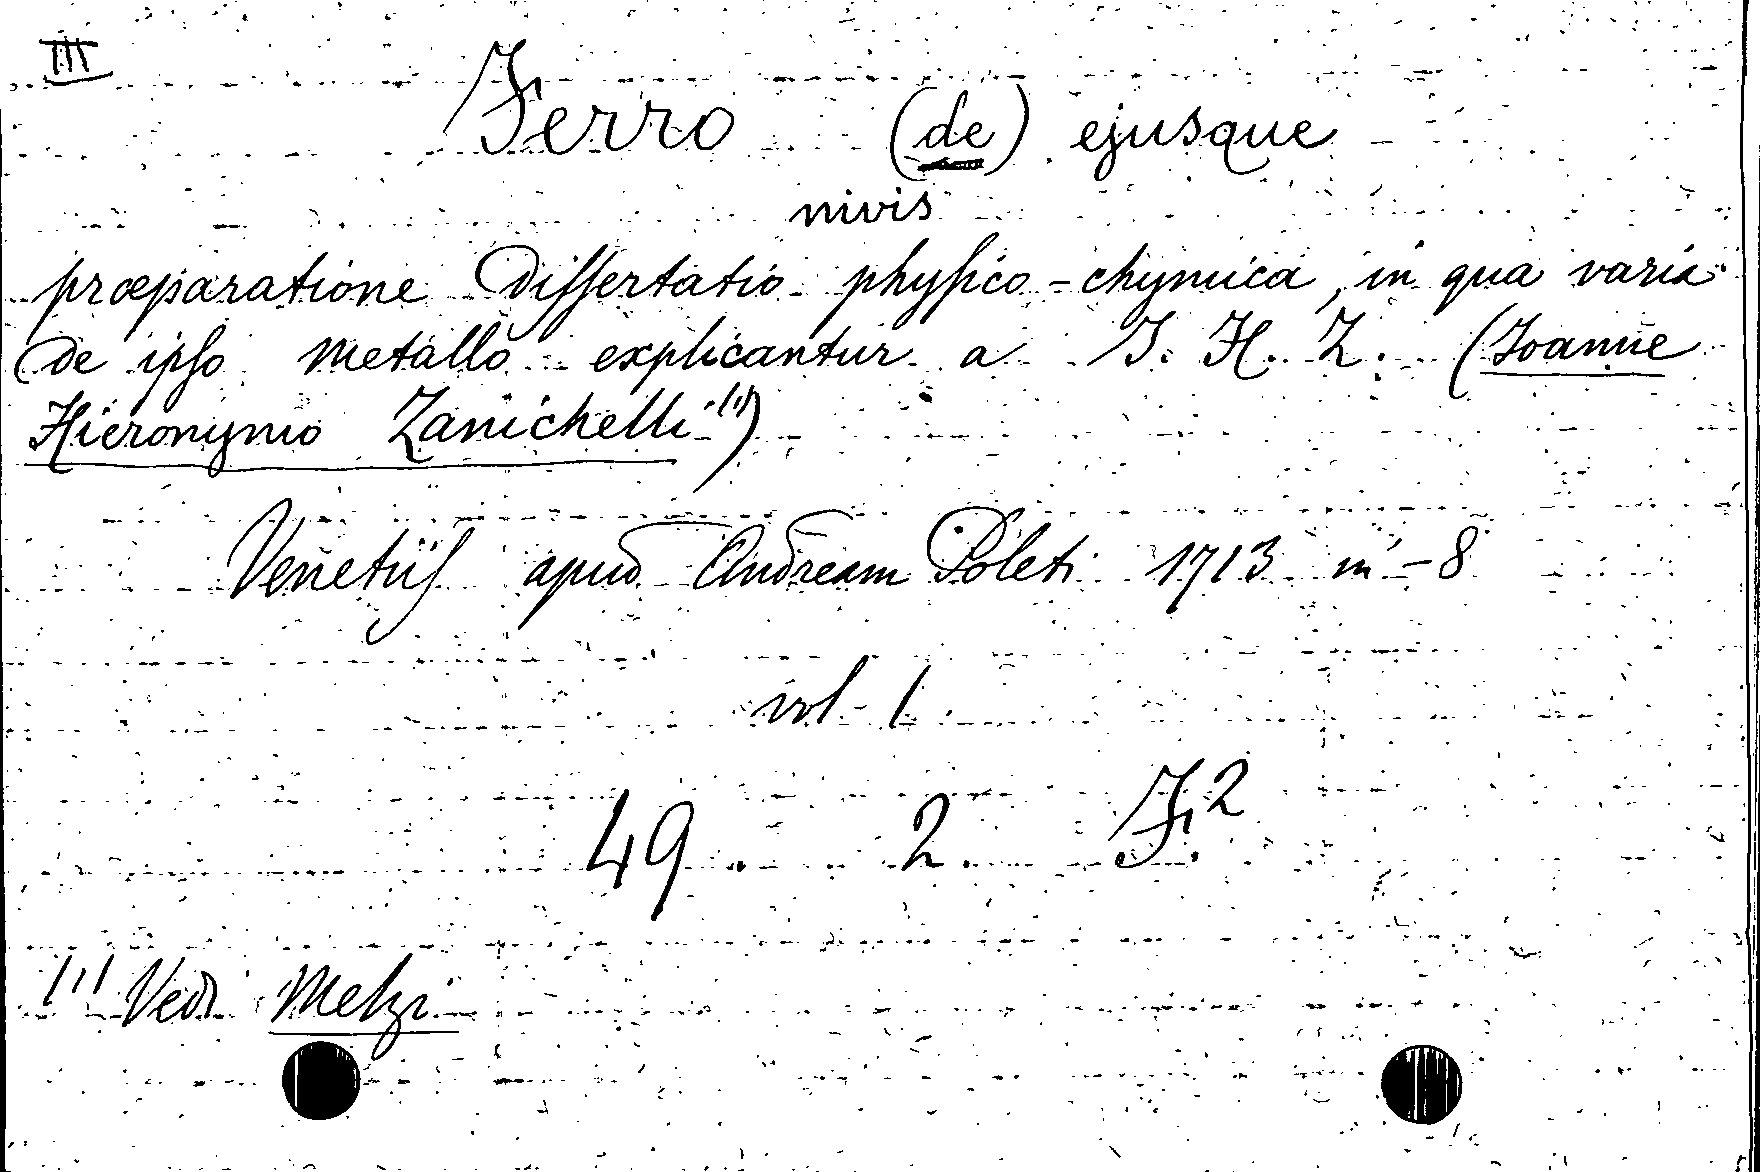 III
Ferro (de) ejusque
nivis
præparatione Dissertatio physico-chymica, in qua varia
de ipso metallo explicantur a J. H. Z. (Joanne
Hieronymo Zanichelli (1))
Venetiis apud Andream Poleti 1713 in-8
vol 1
49. 2. F.2
(1) Vedi Melzi